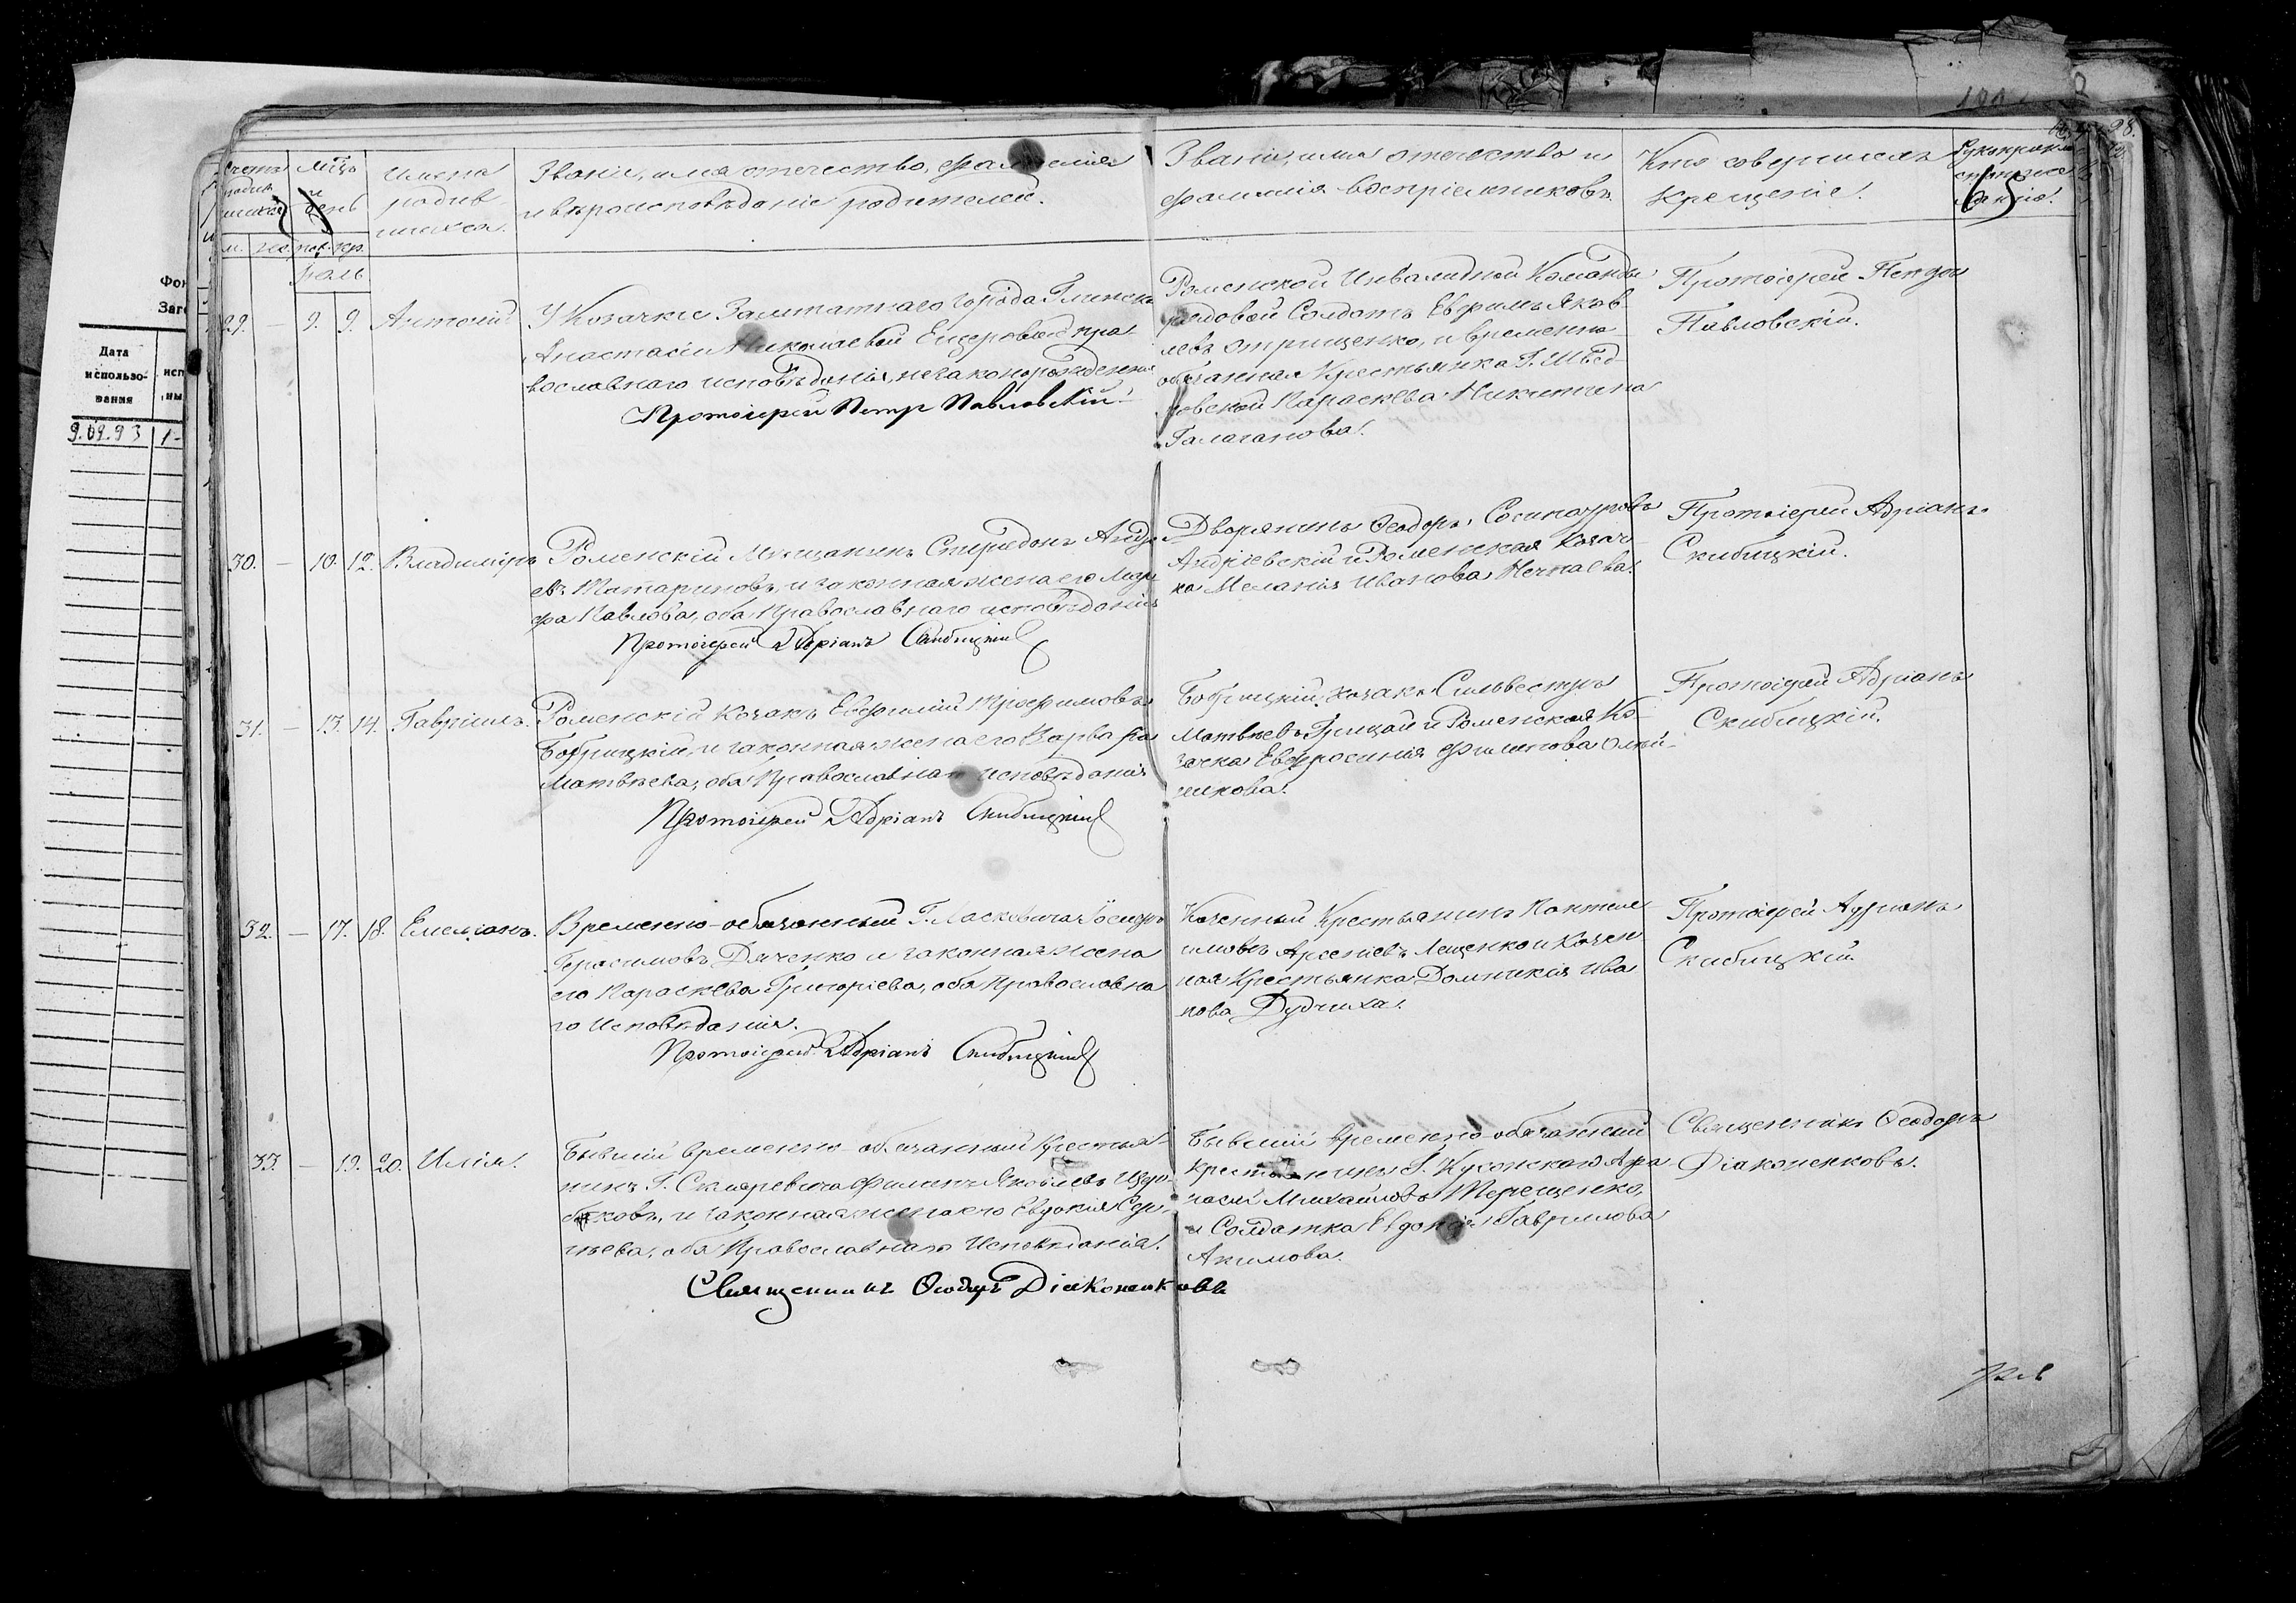 Дата
использо-
вания
9.09.93
Счетъ
родив
шихся
Мцъ
и
день
Имена
родив
шихся.
Званіе, имя отчество, фамилія
и вѣроисповѣданіе родителей.
Званіе, имя отчество и
фамилія воспріемниковъ.
Кто совершилъ
крещеніе.
м. же. рож. кр.
29. — 9. 9. Антоній
У Козачки Заштатнаго города Глинска
Анастасіи Николаевой пра-
вославнаго исповѣданія, незаконорожденный
Протоіерей Петр Павловскій
Роменской Инвалидной Команды
рядовой Солдатъ Евфимъ Яков-
левъ Отрищенко, и временно
обязанная Крестьянка Г.
Параскева Никитина
Галаганова.
Протоіерей Петръ
Павловскій.
30. — 10. 12. Владиміръ
Роменскій Мѣщанинъ Спиридонъ Андре
евъ Татариновъ, и законная жена его Мар
фа Павлова, оба Православнаго исповѣданія
Протоіерей Адріанъ Скибицкій
Дворянинъ Ѳеодоръ
Андріевскій и Роменская Козач-
ка Меланія Иванова Нечаева.
Протоіерей Адріанъ
Скибицкій.
31. — 13. 14. Гавріилъ.
Роменскій Козакъ Евфимій Трофимовъ
Бобрицкій, и законная жена его Варвара
Матвѣева, оба Православнаго исповѣданія
Протоіерей Адріанъ Скибицкій
Бобрицкій, козакъ Сильвестръ
Матвѣевъ Грицай и Роменская Ко-
зачка Евфросинія Филипова Олей-
никова.
Протоіерей Адріанъ
Скибицкій.
32. — 17. 18. Емеліанъ.
Временно-обязанный Г. Маскевича Іосифъ
Герасимовъ Дяченко и законная жена
его Параскева Григоріева, оба Православна
го Исповѣданія.
Протоіерей Адріанъ Скибицкій
Казенный Крестьянинъ Пантеле
имонъ Арсеніевъ Лещенко и Казен
ная Крестьянка Домникія Ива
нова Дудчиха.
Протоіерей Адріанъ
Скибицкій.
33. — 19. 20. Илія.
Бывшій временно-обязанный Крестья-
нинъ Г. Скляревича Филипъ Яковлевъ
и законная жена его Евдокія Сер-
гѣева, оба Православнаго Исповѣданія.
Священникъ Ѳеодоръ Діаконенковъ
Бывшій временно-обязанный
крестьянинъ Г. Афа
насій Михайловъ Терещенко,
и Солдатка Евдокія Гаврилова
Акимова.
Священникъ Ѳеодоръ
Діаконенковъ.